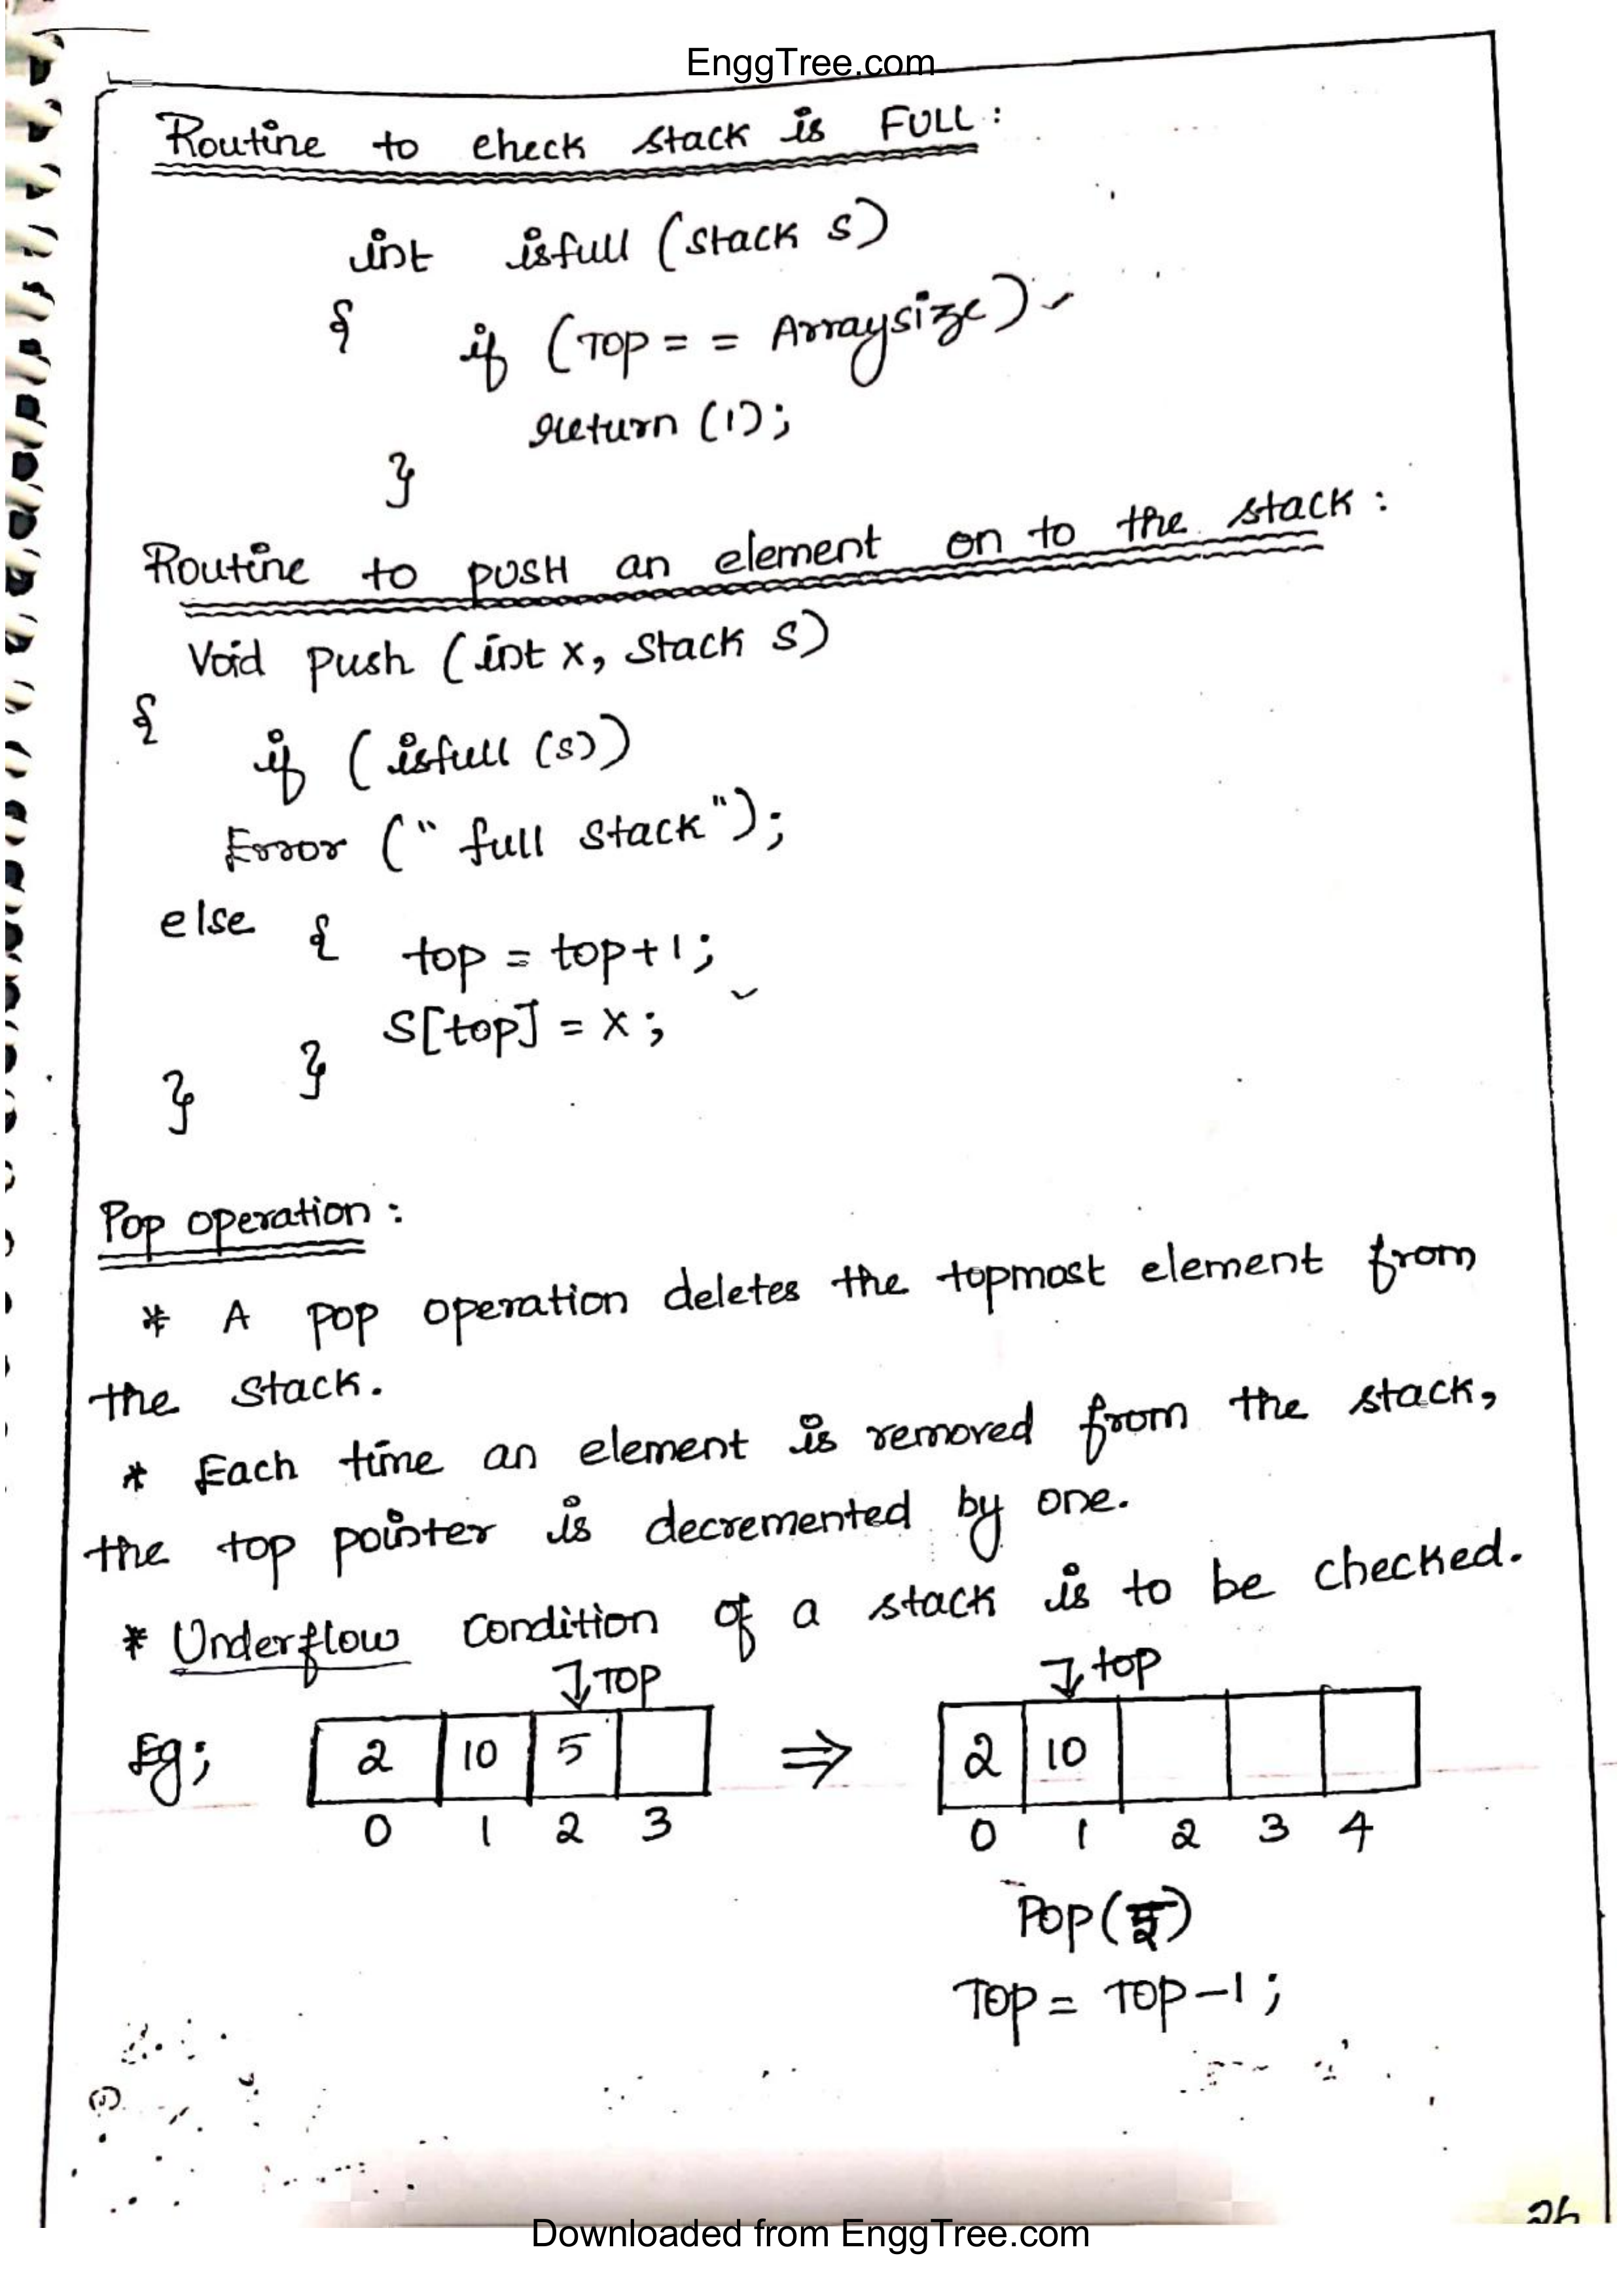 EnggTree.com
Routine to check stack is FULL :
int isfull (stack s)
{ if (TOP = = Arraysize)
return (1);
}
Routine to PUSH an element on to the stack :
Void push (int x, Stack s)
{
if (isfull (s))
Error (" full stack");
else { top = top+1;
S[top] = x ;
}
}
Pop operation :
* A pop operation deletes the topmost element from
the stack.
* Each time an element is removed from the stack,
the top pointer is decremented by one.
* Underflow condition of a stack is to be checked.
TOP top
Eg; 2 10 5 ⇒ 2 10
0 1 2 3 0 1 2 3 4
Pop( )
TOP = TOP-1 ;
26
Downloaded from EnggTree.com